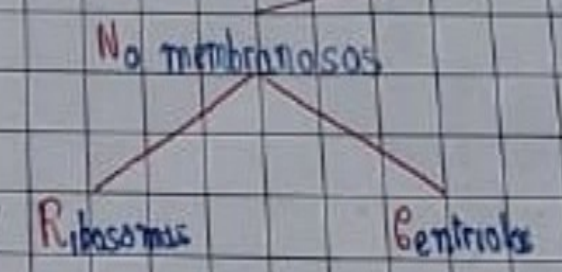 No membranosos
Ribosomas Centriolos